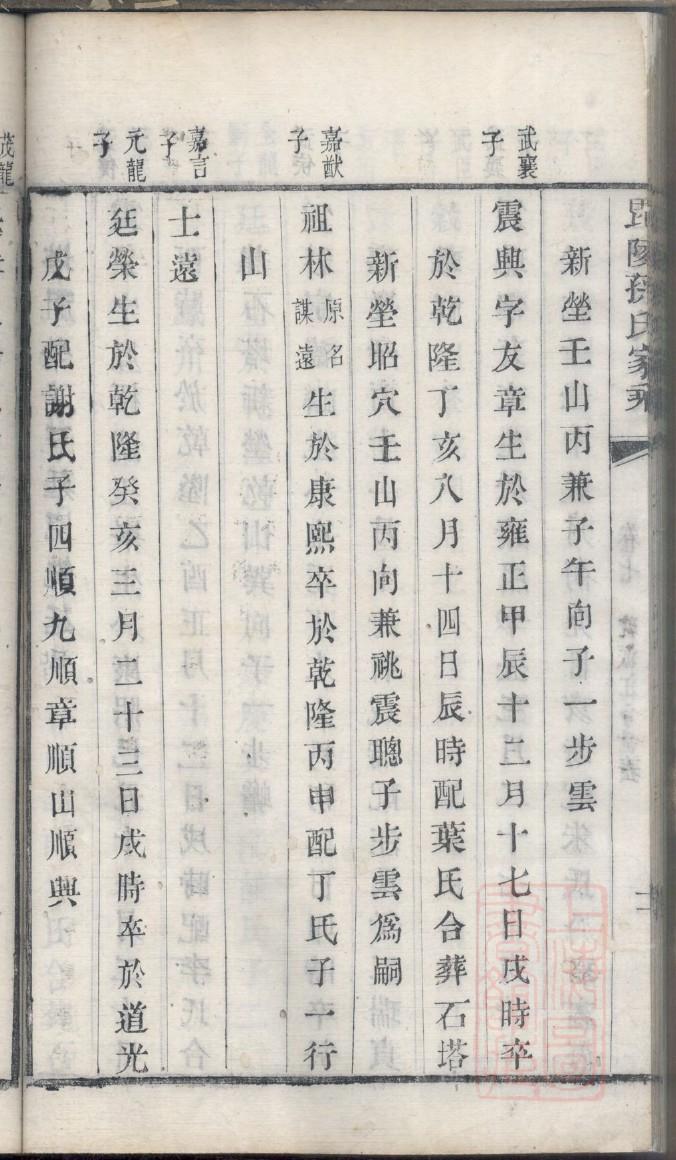 毘陵孫氏家乘
新塋壬山丙兼子午向子一步雲
武襄子
震興字友章生於雍正甲辰十二月十七日戌時卒
於乾隆丁亥八月十四日辰時配葉氏合葬石塔
新塋昭穴壬山丙向兼祧震聰子步雲爲嗣
嘉猷子
祖林原名謀遠生於康熙卒於乾隆丙申配丁氏子一行
山
嘉言子
士遠
元龍子
廷榮生於乾隆癸亥三月二十三日戌時卒於道光
戊子配謝氏子四順九順章順山順興
茂龍